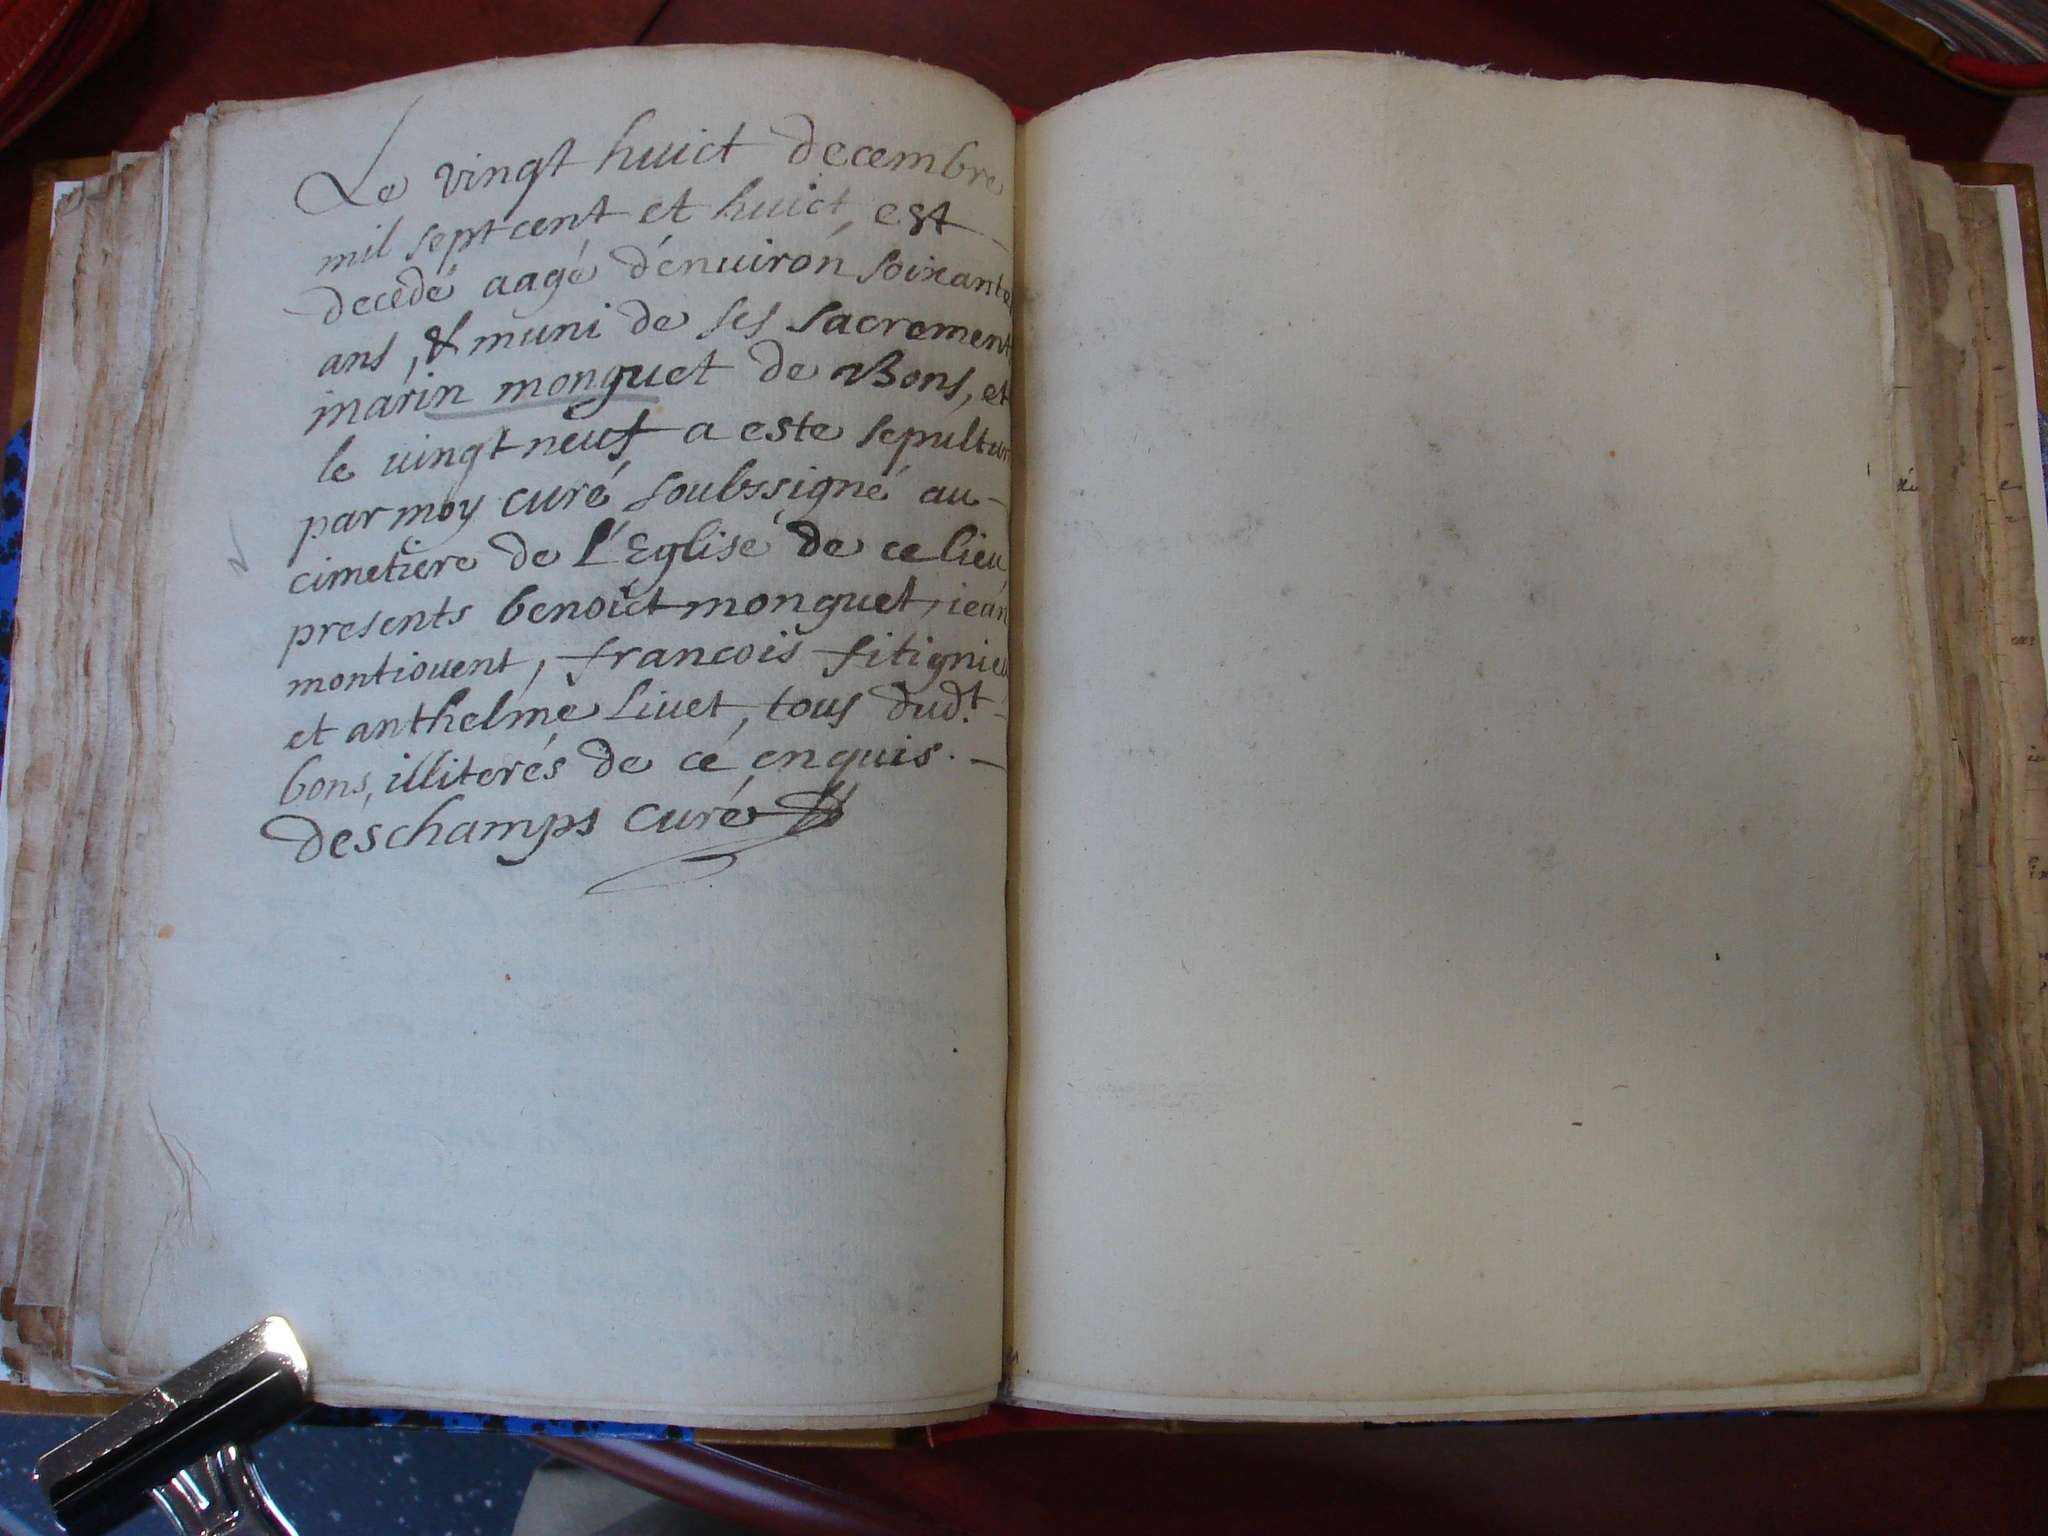 Le vingt huict decembre
mil sept cent et huict, est
decedé aagé d'enuiron soixante
ans, & muni de ses sacrements
marin monguet de Bons, et
le uingt neuf a este sepultur
par moy curé soubssigné au
cimetiere de l'Eglise de ce lieu,
presents benoict monguet, iean
montiouent, francois fitignieu
et anthelme Liuet, tous dud.t
bons, illiterés de cé enquis.
deschamps curé